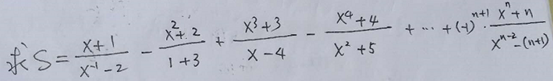 求 S = \frac{x+1}{x^{-1}-2} - \frac{x^2+2}{1+3} + \frac{x^3+3}{x-4} - \frac{x^4+4}{x^2+5} + \cdots + (-1)^{n+1} \cdot \frac{x^n+n}{x^{n-2}-(n+1)}